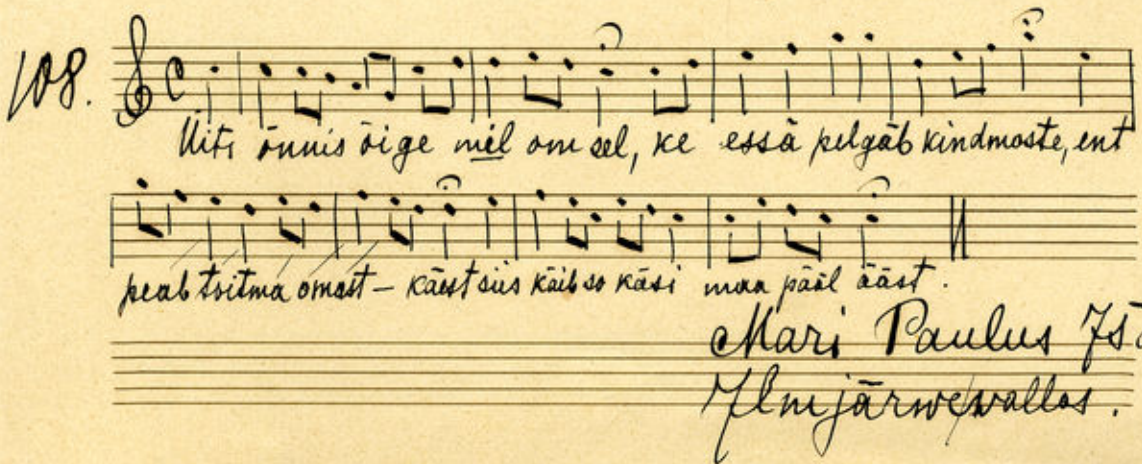 108.
Üits õnnis õige meel om sel, ke essä pelgäb kindmaste, ent
peab toitma omast- käest siis käib so käsi maa pääl ääst.
Mari Paulus 75
Ilmjärwe wallas.